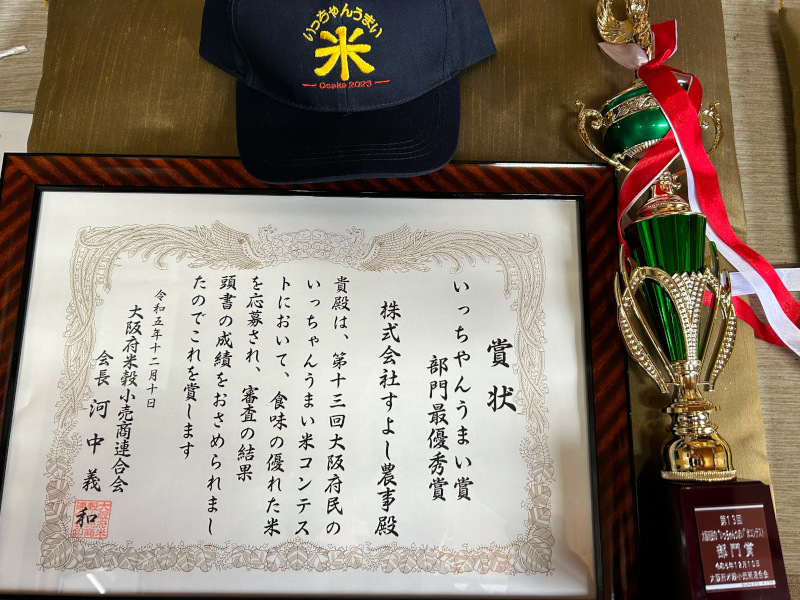 いっちゃんうまい
米
Osaka 2023
賞状
いっちゃんうまい賞
部門最優秀賞
株式会社すよし農事殿
貴殿は、第十三回大阪府民の
いっちゃんうまい米コンテス
トにおいて、食味の優れた米
を応募され、審査の結果
頭書の成績をおさめられまし
たのでこれを賞します
令和五年十二月十日
大阪府米穀小売商連合会
会長 河中義和
第13回
大阪府民の"いっちゃんうまい"米コンテスト
部門賞
令和5年12月10日
大阪府米穀小売商連合会